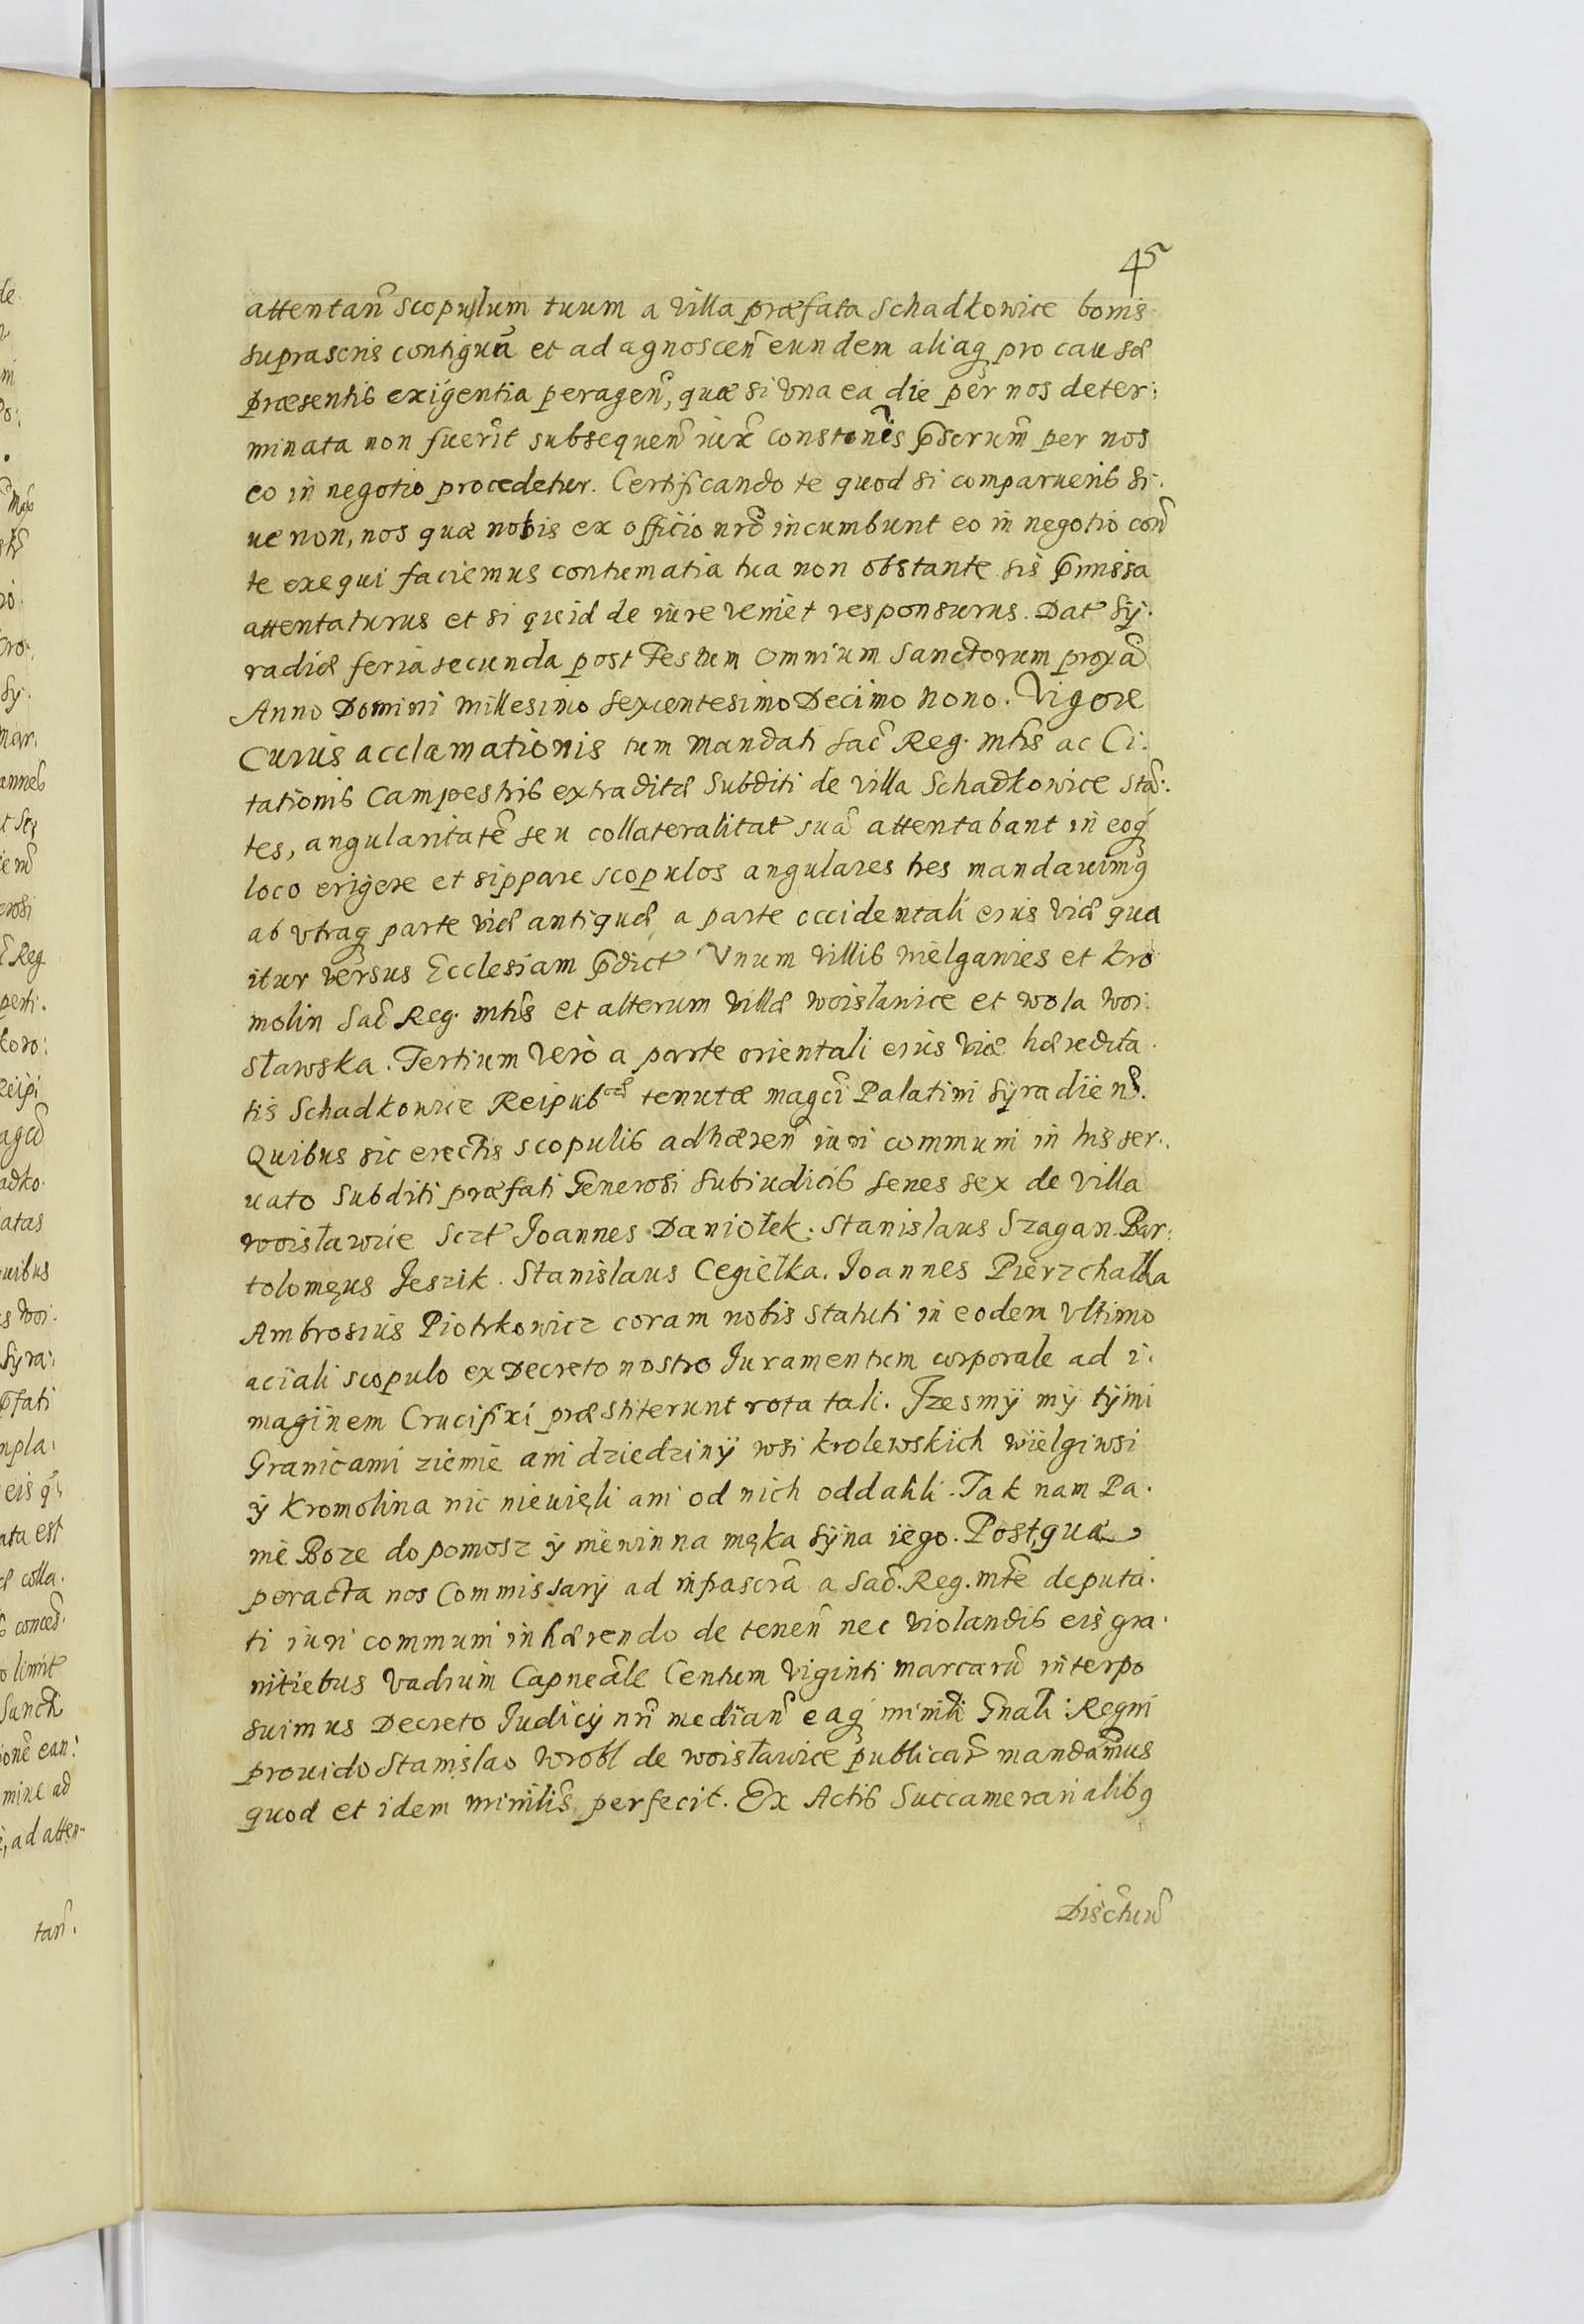 45
attentan̄ scopulum tuum a villa præfata Schadkowice bonis
suprascris contiguū et ad agnoscen̄ eundem aliaq pro causæ
præsentis exigentia peragen̄, quæ si vna ea die per nos deter:
minata non fuerit subsequen̄ iux̄ constonēs p̄scrum̄ per nos
eo in negotio procedetur. Certificando te quod si comparueris si:
ue non, nos quæ nobis ex officio nrō incumbunt eo in negotio con̄
te exequi faciemus contumatia tua non obstante sis p̄missa
attentaturus et si quid de iure veniet responsurus. Dat Sy:
radiæ feria secunda post Festum Omnium Sanctorum proxā
Anno Domini Millesimo sexcentesimo Decimo Nono. Vigore
Cuius acclamationis tum mandati Sac̄ Reg. Mtis ac Ci:
tationis Campestris extraditæ Subditi de villa Schadkowice stā:
tes, angularitatē seu collateralitat suā attentabant in eoq
loco erigere et sippare scopulos angulares tres mandauimꝯ
ab vtraq parte viæ antiquæ, a parte occidentali eius viæ qua
itur versus Ecclesiam p̄dict Vnum villis Wielgawies et Kro
molin Sac̄ Reg. Mtis et alterum villæ Woisławice et Wola Woi:
sławska. Tertium vero a parte orientali eius viæ hæredita
tis Schadkowice Reipubcæ tenutæ magci Palatini Syradien̄.
Quibus sic erectis scopulis adhæren̄ iuri communi in his ser:
uato subditi præfati Generosi Subiudicis senes sex de villa
Woisławice Sczt Joannes Daniołek: Stanislaus Szagan. Bar:
tolomęus Jeszik. Stanislaus Cegiełka. Joannes Pierzchałka
Ambrosius Piotrkowicz coram nobis statuti in eodem vltimo
aciali scopulo ex Decreto nostro Iuramentum corporale ad i:
maginem Crucifixi præstiterunt rota tali. Jzesmÿ mÿ tÿmi
Granicami ziemie ani dziedzinÿ wsi krolewskich wielgiwsi
ÿ Kromolina nic niewięli ani od nich oddalili. Tak nam Pa:
nie Boze do pomosz ÿ niewinna męka Sÿna iego. Post quæ
peracta nos Commissarÿ ad infrascrā a Sac̄. Reg. Mte deputa:
ti iuri communi inhærendo de tenen̄ nec violandis eis gra:
nitiebus vadium Capneāle Centum viginti marcarū interpo
suimus Decreto Iudicij nri median̄ eaq minlī Gnali Regni
prouido Stanislao Wrobl de Woisławice publicar̄ mandamus
quod et idem minilis perfecit. Ex Actis Succamerarialibꝯ
Disc̄tuū